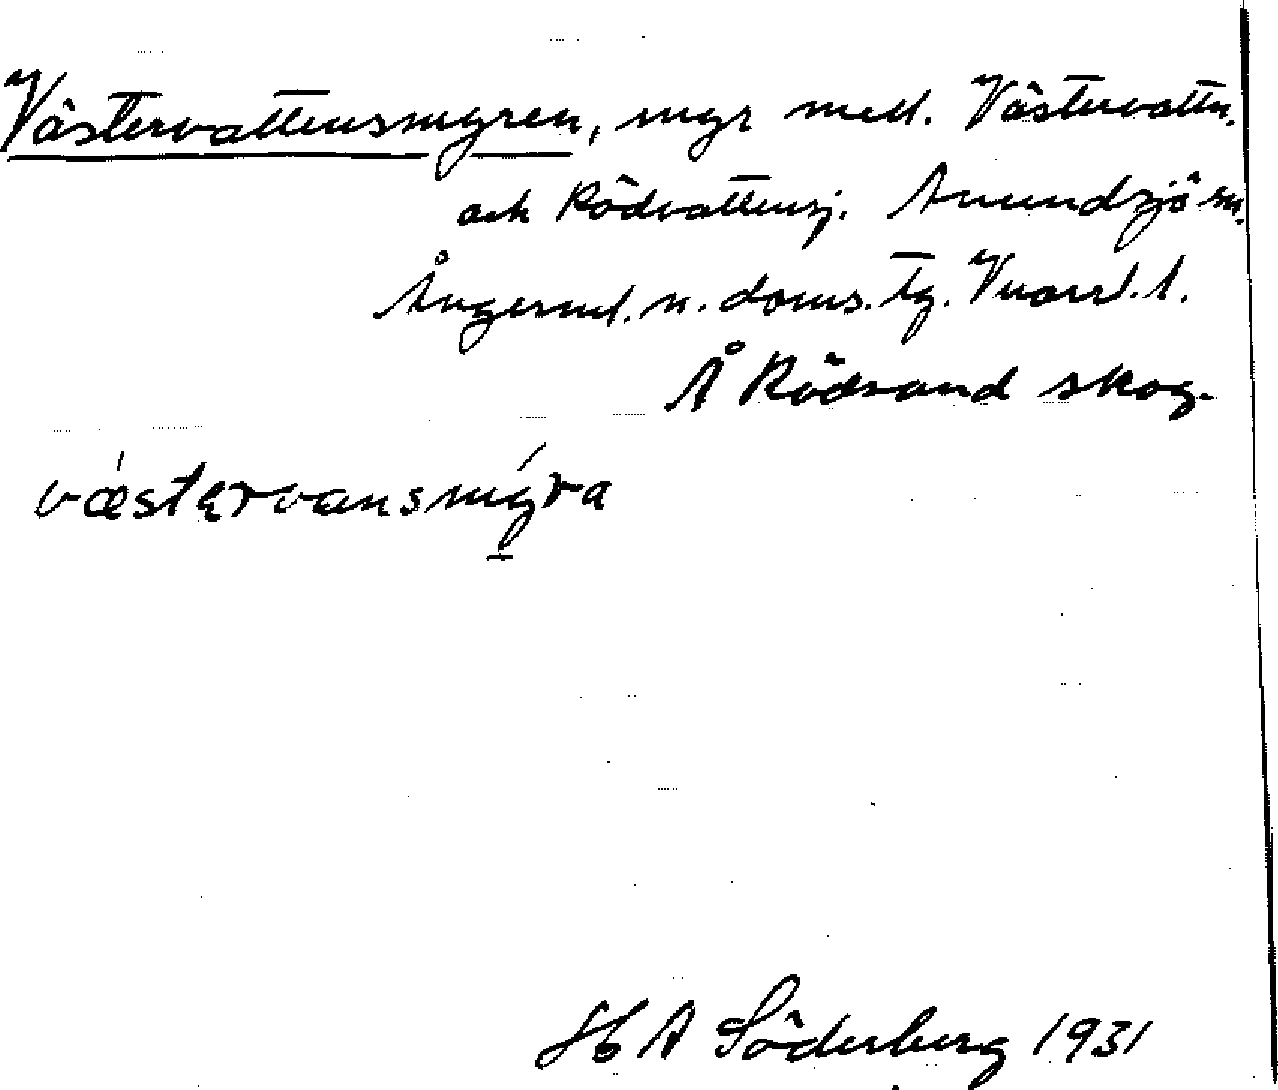 Västervattensmyren, myr mell. Västervattn.
och Rödvattensj. Anundsjö sn.
Ångerml. n. doms. Tg.
Å Rödsand skog.
västervansmýra
H A Söderberg 1931